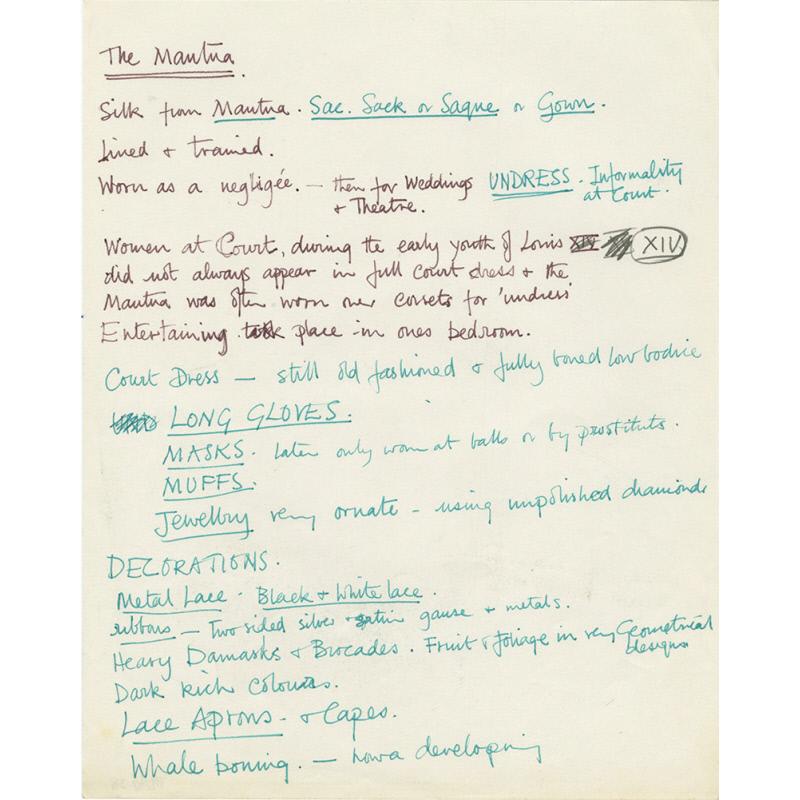 The Mantua.
Silk from Mantua. Sac. Sack or Saque or Gown.
Lined & trained.
Worn as a negligée. — then for Weddings & Theatre. UNDRESS. Informality at Court.
Women at Court, during the early youth of Louis XIV
did not always appear in full court dress & the
Mantua was often worn over corsets for 'undress'
Entertaining took place in ones bedroom.
Court Dress — still old fashioned & fully boned low bodice
LONG GLOVES.
MASKS. Later only worn at balls or by prostituts.
MUFFS.
Jewellry very ornate - using unpolished diamonds
DECORATIONS.
Metal Lace. Black & White lace.
ribbons — Two sided silver & satin gause & metals.
Heavy Damasks & Brocades. Fruit & foliage in very Geometrical designs
Dark rich colours.
Lace Aprons - & Capes.
Whale boning. — developing